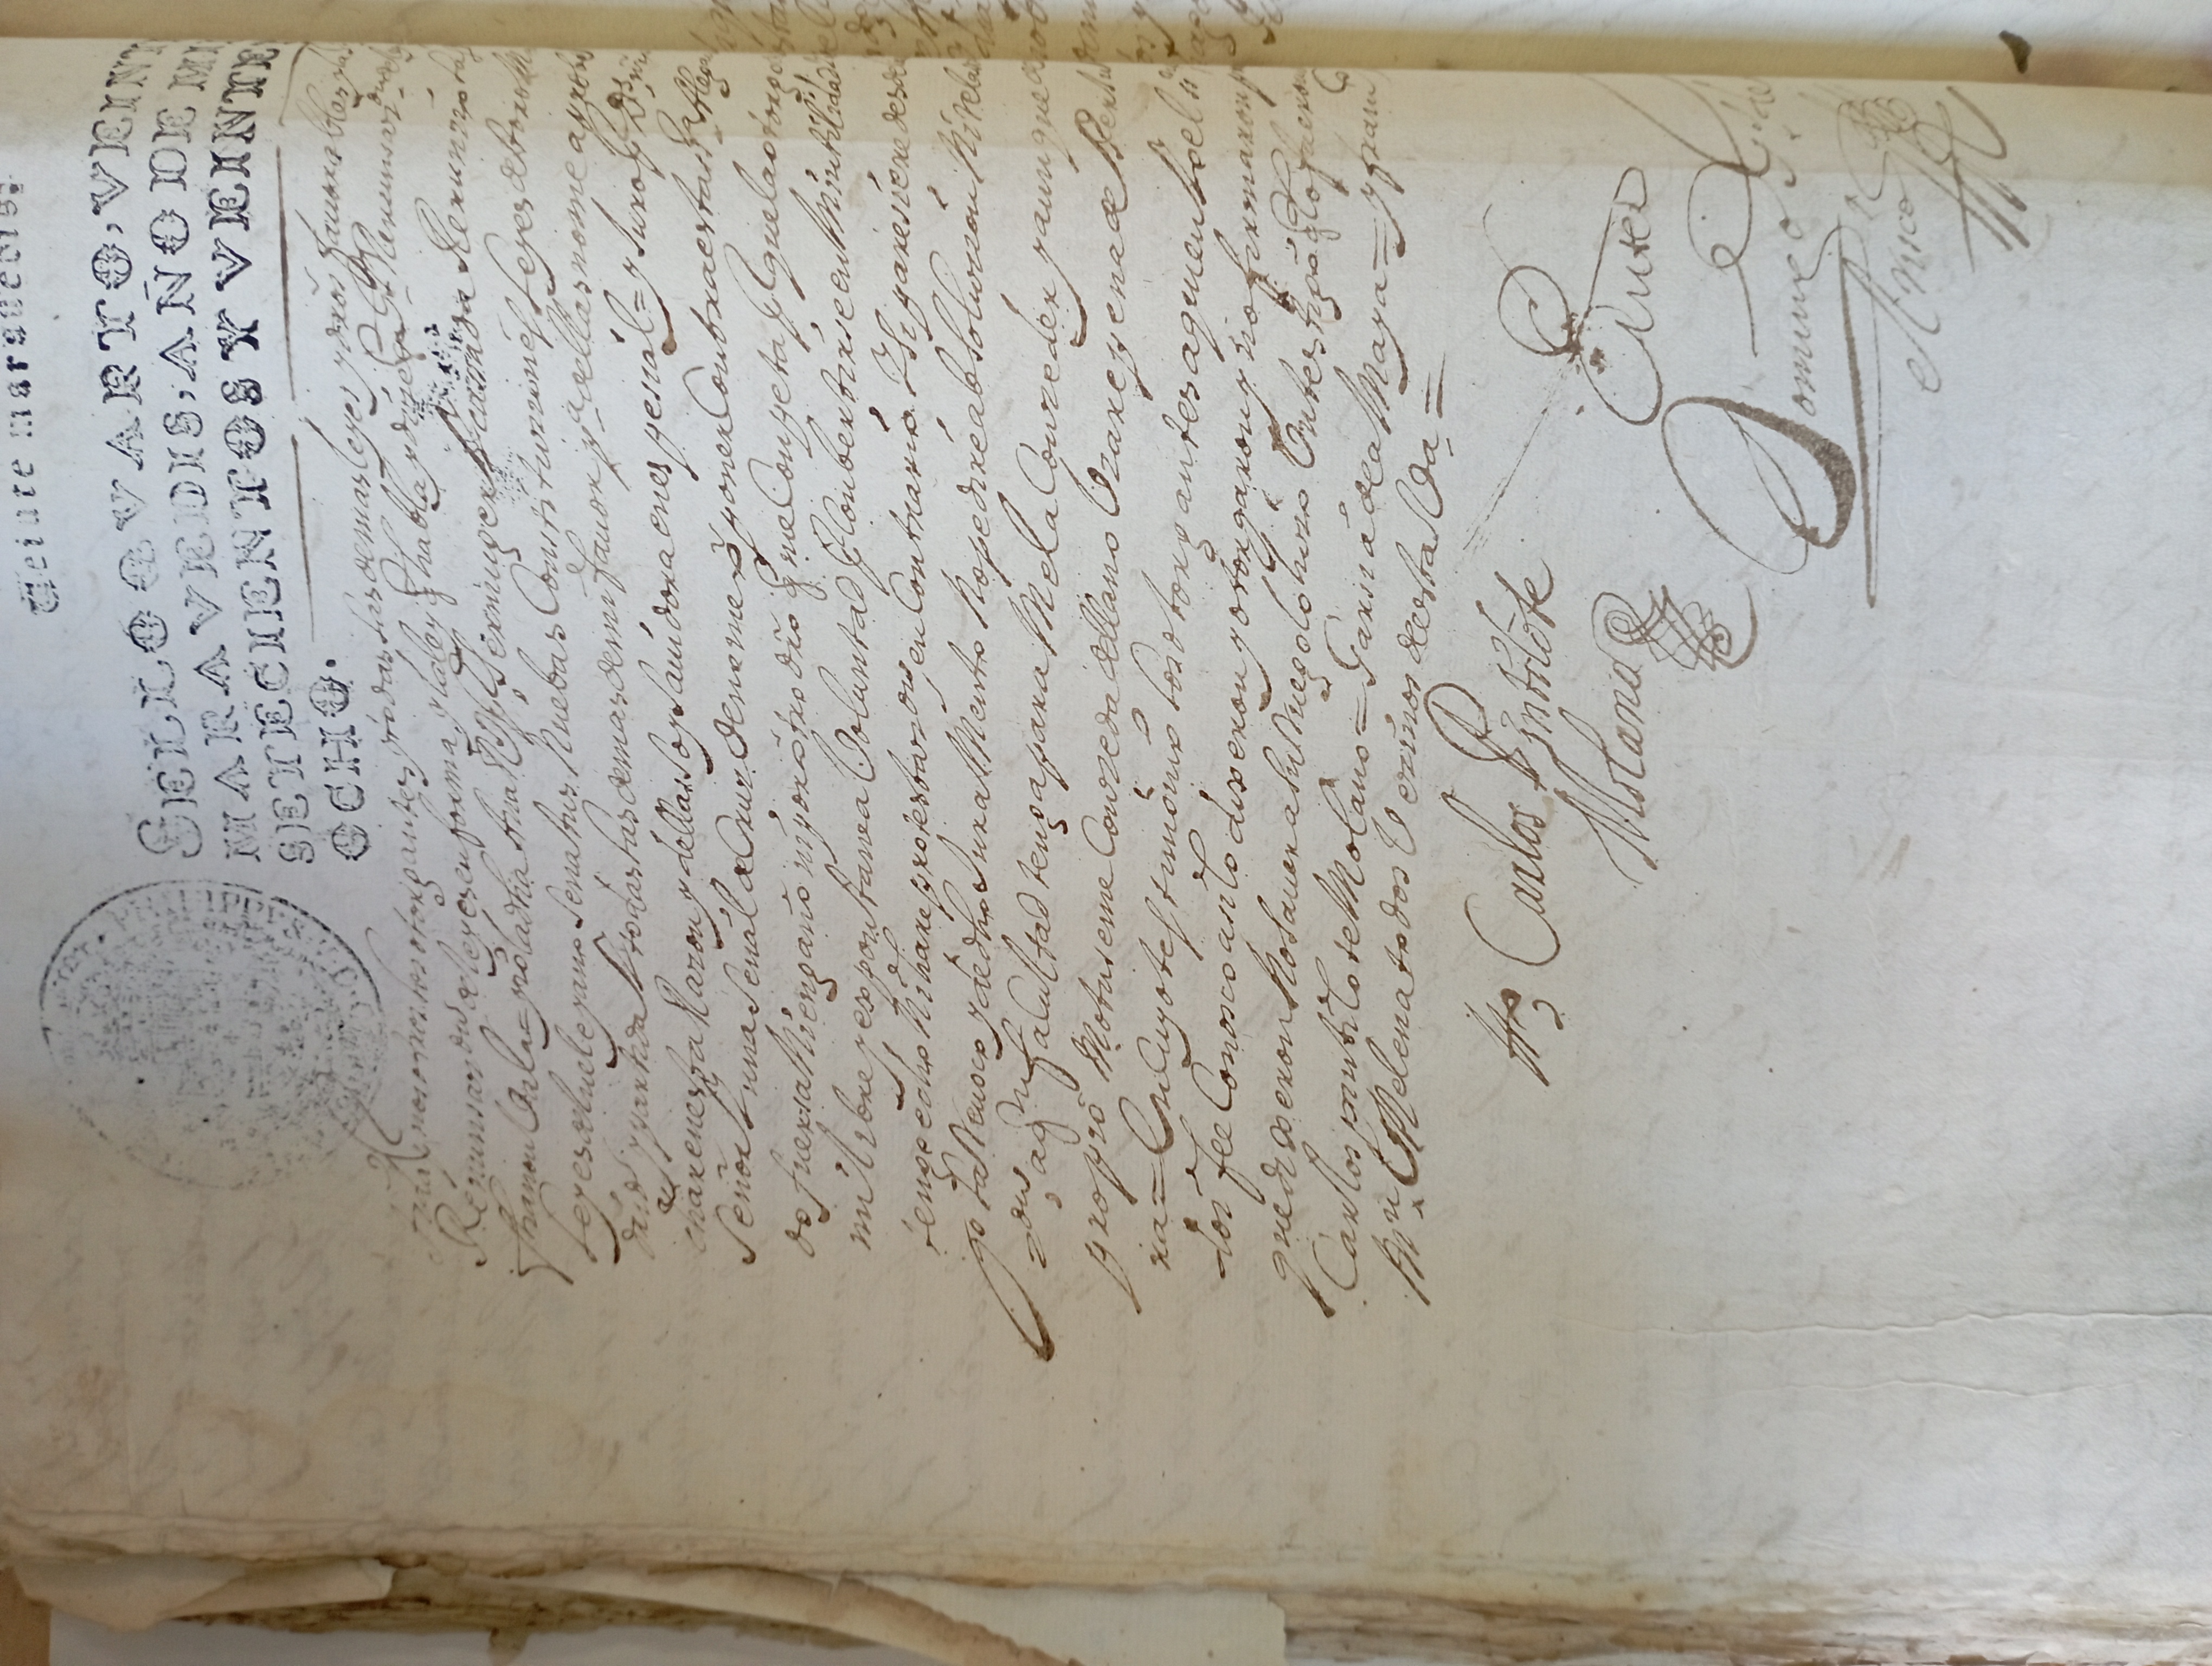 Veinte marauedis.
SELLO QVARTO, VEINT
MARAVEDIS, AÑO DE MI
SETECIENTOS Y VEINTE
OCHO.
nosotros los otorgantes y todas las demas leyes y dr̃os fauorables y la
Renunsiaz.on de leyes en forma y la ley q̃ habla y dize q̃ Gl Renunsiaz.on
fha non Vala = yo la dha Ana por ser muger casada Renunzio las
Leyes del ueleyano Senatus Nuebas Constituziones Leyes de toro
drid y partida y todas las demas de mi fauor p.a dellas no me aprobe
char en esta Razon y dellas soy sauidora en espesial = y Juro p.r Ds nr̃o
Señor y una señal de Cruz de no me oponer Contra esta ss.ra Alegan
do fuersa Ni engaño ni por otro dr̃o q̃ me Conpeta p.r que la otorgo de
mi libre y expontanea Voluntad p.r Conbertirse en Mi utilidad
tengo echo Ni hare protestaz.on en Contrario Y si paresiere desde
go la Reuoco y de dho Jura Mento No pedire absoluzion Ni relax
z.on a q.n facultad tenga para Me la Conzeder y aunque de
propio Motu se me Conzeda della no Vzare pena de Perju
ra = En Cuyo testimonio los otorgantes a quien Yo el
doi fee Conosco asi lo dixeron y otorgaron y no firmaron p
que dixeron No sauer a su Ruego lo hizo Un testigo q̃ lo fueron
Carlos pintilote Molano = Garsia de a Maya = y fran.co
M.n Melena todos Vezinos de esta V.a =
t.o Carlos Pintilote
Molano
Ante
Domingo